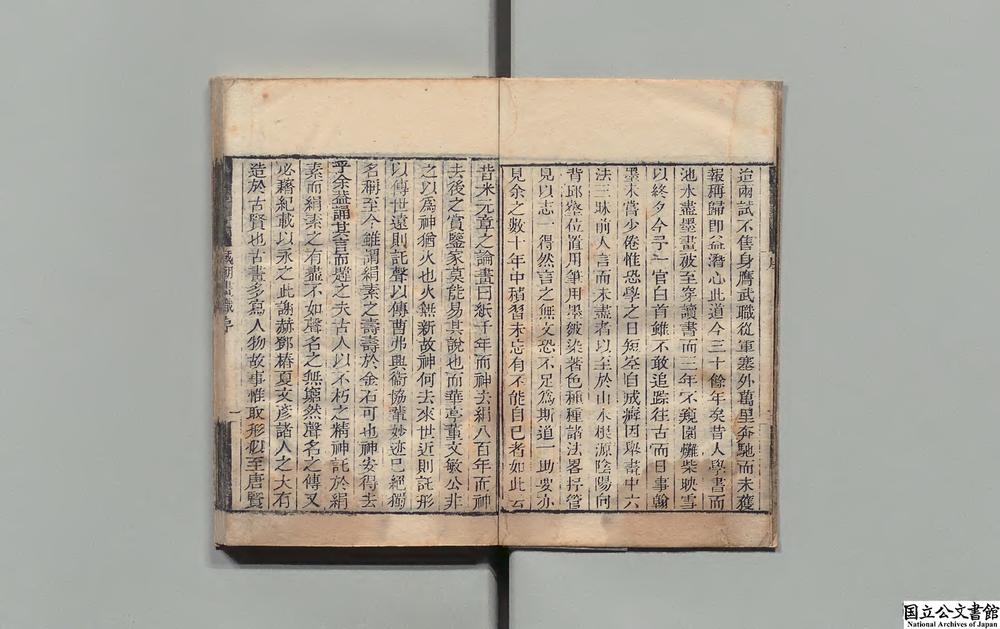 迨兩試不售身膺武職從軍塞外萬里奔馳而未獲
報稱歸即益潛心此道今三十餘年矣昔人學書而
池水盡墨畫被至穿讀書而三年不窺園爇柴映雪
以終夕今予一官白首雖不敢追踪往古而日事翰
墨未嘗少倦惟恐學之日短空自成癖因舉畫中六
法三昧前人言而未盡者以至於山水根源陰陽向
背邱壑位置用筆用墨皴染著色種種諸法畧抒管
見以志一得然言之無文恐不足爲斯道一助要亦
見余之數十年中積習未忘有不能自已者如此云
序
昔米元章之論畫曰紙千年而神去絹八百年而神
去後之賞鑒家莫能易其說也而華亭董文敏公非
之以爲神猶火也火無新故神何去來世近則託形
以傳世遠則託聲以傳曹弗興衛協輩妙迹已絕獨
名稱至今雖謂絹素之壽壽於金石可也神安得去
乎余葢誦其言而韙之夫古人以不朽之精神託於絹
素而絹素之有盡不如聲名之無窮然聲名之傳又
必藉紀載以永之此謝赫鄧椿夏文彦諸人之大有
造於古賢也古畫多寫人物故事惟取形似至唐賢
序
一
国立公文書館
National Archives of Japan